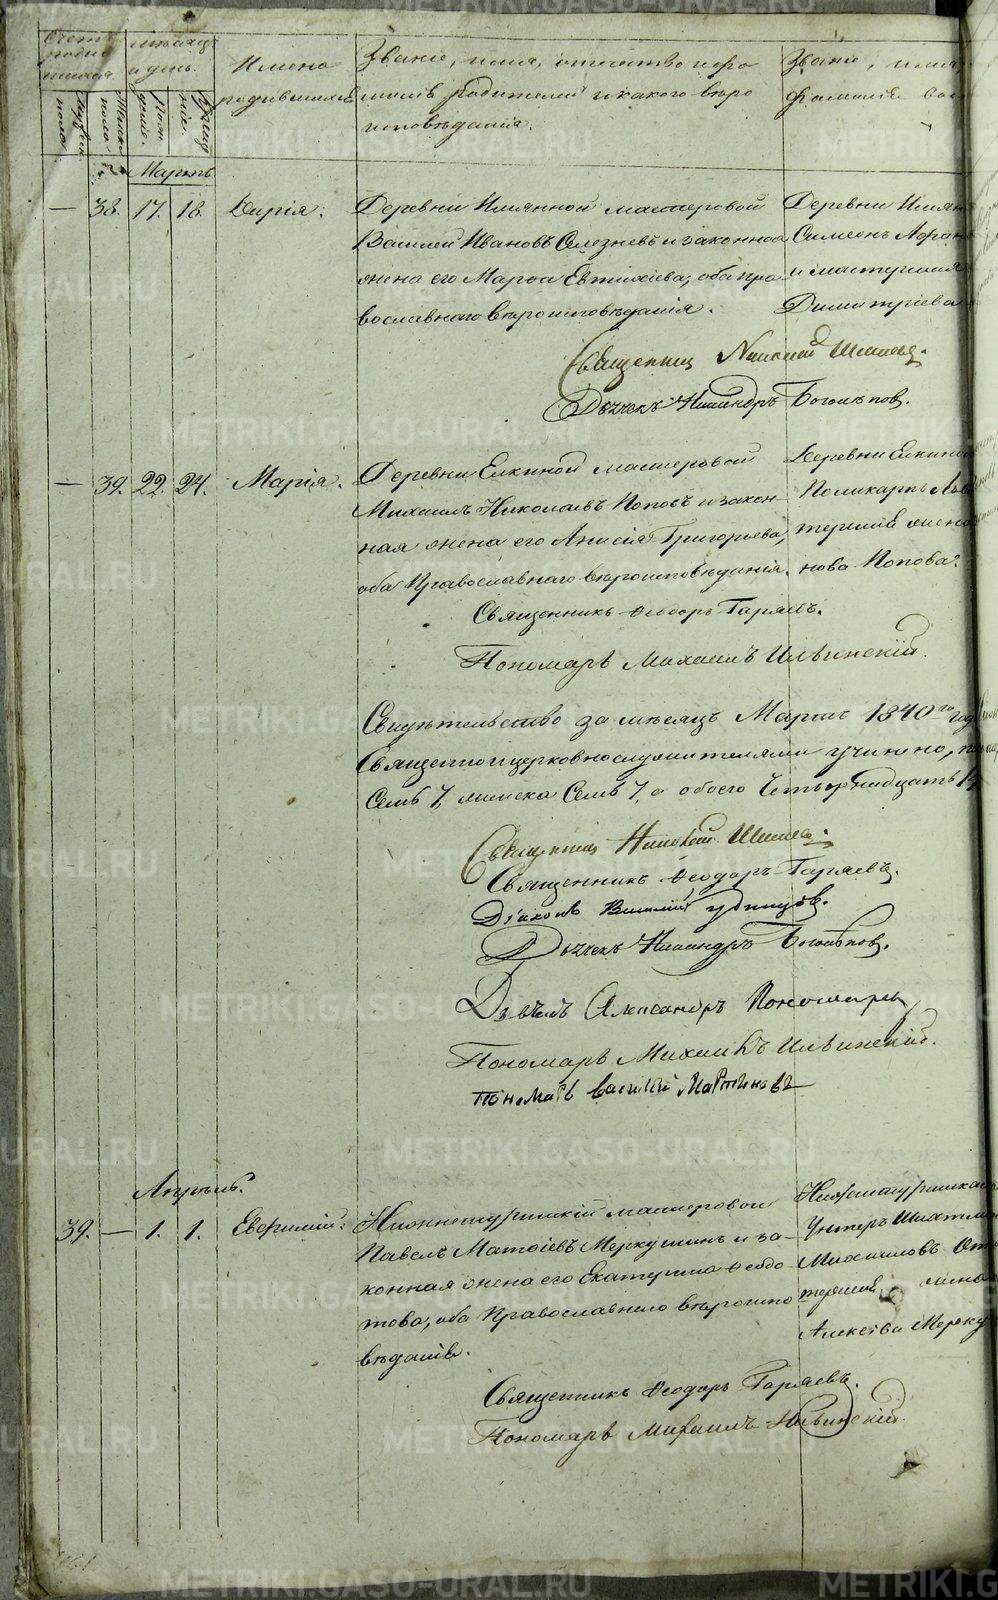 Счетъ родившихся.
Мѣсяцъ и день.
Имена родившихся
Званіе, имя, отечество и фамилія родителей и какого вѣроисповѣданія.
Званіе, имя,
фамилія
Мужеска пола.
Женска пола.
Рожденія.
Крещенія.
Мартъ
— 38. 17. 18. Дарія.
Деревни Имянной мастеровой
Василей Ивановъ Селезневъ и законная
жена его Марѳа Евтихіева, оба пра-
вославнаго вѣроисповѣданія.
Деревни Имян
Симеонъ Афон
и мастерская
Димитріева
Священникъ Николай
Дьячекъ Никандръ Боголѣповъ.
— 39. 22. 24. Марія.
Деревни Елкиной мастеровой
Михаилъ Николаевъ Поповъ и закон-
ная жена его Анисія Григорьева,
оба Православнаго вѣроисповѣданія.
Деревни Елкиной
Поликарпъ
терская жена
нова Попова.
Священникъ Ѳеодоръ Гаряевъ.
Пономарь Михаилъ Ильинскій.
Свидѣтельство за мѣсяцъ Мартъ 1840го год
Священноицерковнослужителями учинено,
Семь 7, женска Семь 7, а обоего Четырнадцать 14
Священникъ Николай
Священникъ Ѳеодоръ Гаряевъ.
Діаконъ Василій Удинцовъ.
Дьячекъ Никандръ Боголѣповъ.
Дьячекъ Александръ Пономаревъ
Пономарь Михаилъ Ильинскій.
Пономарь Василій Мартиновъ
Апрѣль.
39. — 1. 1. Евфимій.
Нижнетуринскій мастеровой
Павелъ Матѳіевъ Меркушинъ и за-
конная жена его Екатерина Ѳедо-
това, оба Православнаго вѣроиспо-
вѣданія.
Нижнетуринска
Унтеръ Шихтмей
Михаиловъ
терская жена
Алексѣва Мерку
Священникъ Ѳеодоръ Гаряевъ.
Пономарь Михаилъ Ильинскій.
METRIKI.GASO-URAL.RU